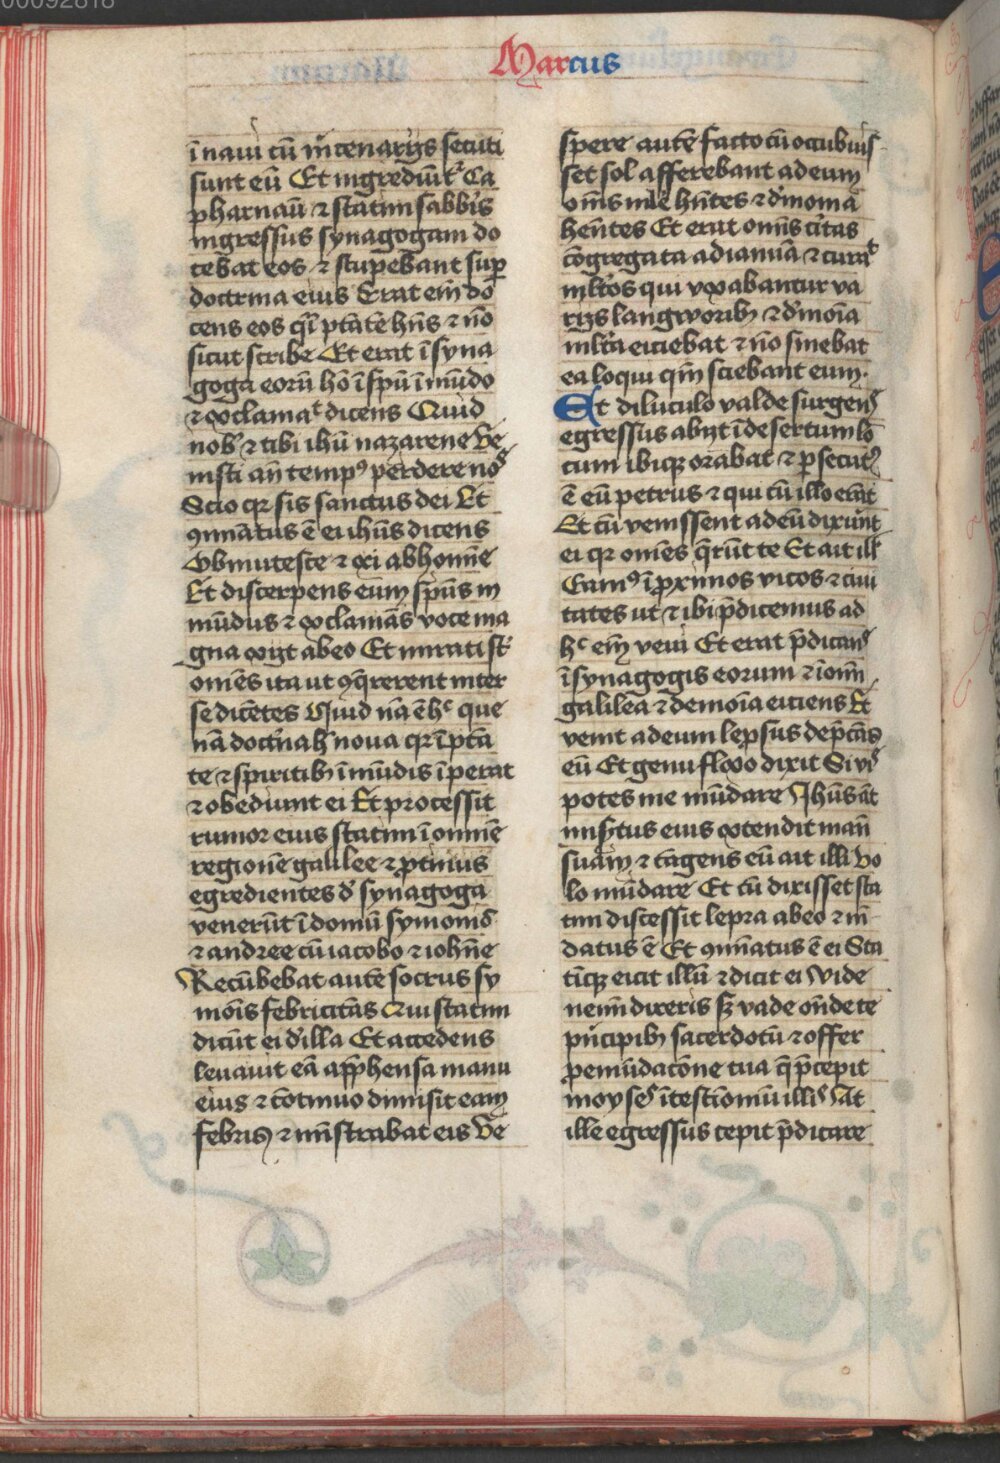 Marcus
ī naui cū m̄cenarijs secuti
sunt eū Et ingrediūt᷑ Ca
pharnaū ⁊ statim sabb̄is
ingressus synagogam do
cebat eos ⁊ stupebant suꝑ
doctrina eius Erat em̄ do
cens eos q̄i ptātē hn̄s ⁊ nō
sicut scribe Et erat ī syna
goga eorū hō ī spū īmūdo
⁊ exclamat᷑ dicens Quid
nob̄ ⁊ tibi ihū nazarene Ve
nisti an̄ tempꝰ perdere nos
Scio qꝛ sis sanctus dei Et
ꝯminatus ē ei ihūs dicens
Obmutesce ⁊ exi ab homīe
Et discerpens eum spūs in
mūdus ⁊ exclamās voce ma
gna exijt ab eo Et mirati st̄
om̄es ita ut ꝯq̄rerent inter
se dicētes Quid nā ē hᶜ que
nā doct̓na h̄ noua qꝛ ī ptā
te ⁊ spiritibꝫ īmūdis īperat
⁊ obediunt ei Et processit
rumor eius statim ī omnē
regionē galilee ⁊ ꝓtinus
egredientes d̓ synagoga
venerūt ī domū symonis
⁊ andree cū iacobo ⁊ ioh̄ne
Recūbebat autē socrus sy
mōis febricitās Qui statim
dicūt ei d̓ illa Et accedens
leuauit eā app̄hensa manu
eius ⁊ cōtinuo dimisit eam
febris ⁊ mīstrabat eis Ve
spere autē facto cū occubuis
set sol afferebant ad eum
om̄s mle hn̄tes ⁊ d̓monia
hen̄tes Et erat omīs ci̓tas
cōgregata ad ianuā ⁊ curaᵗ
ml̄tos qui vexabantur va
rijs langworibꝫ ⁊ d̓mōia
ml̄ta eiciebat ⁊ nō sinebat
ea loqui qm̄ sciebant eum.
Et diluculo valde surgens
egressus abijt ī desertum lo
cum ibiqꝫ orabat ⁊ ꝑsecutꝰ
ē eū petrus ⁊ qui cū illo erāt
Et cū venissent ad eū dixūnt
ei qꝛ om̄es q̄rūt te Et ait ill̄
Eamꝰ ī ꝓximos vicos ⁊ ciui
tates ut ⁊ ibi p̄dicemus ad
hᶜ em̄ veni Et erat p̄dicans
ī synagogis eorum ⁊ ī om̄i
galilea ⁊ demōia eiciens Et
venit ad eum leprosus dep̄cās
eū Et genu flexo dixit Si vis
potes me mūdare Jhūs āt
mis̓tus eius extendit man̄
suam ⁊ tāgens eū ait illi Vo
lo mūdare Et cū dixisset sta
tim discessit lepra ab eo ⁊ m̄
datus ē Et ꝯmīatus ē ei Sta
tīqꝫ eicit illū ⁊ dicit ei Vide
nemī dixeris sꝫ vade on̄de te
pn̓cipibꝫ sacerdotū ⁊ offer
ꝓ emūdacōne tua q̄ p̄cepit
moyses ī testimōiū illis At
ille egressus cepit p̄dicare